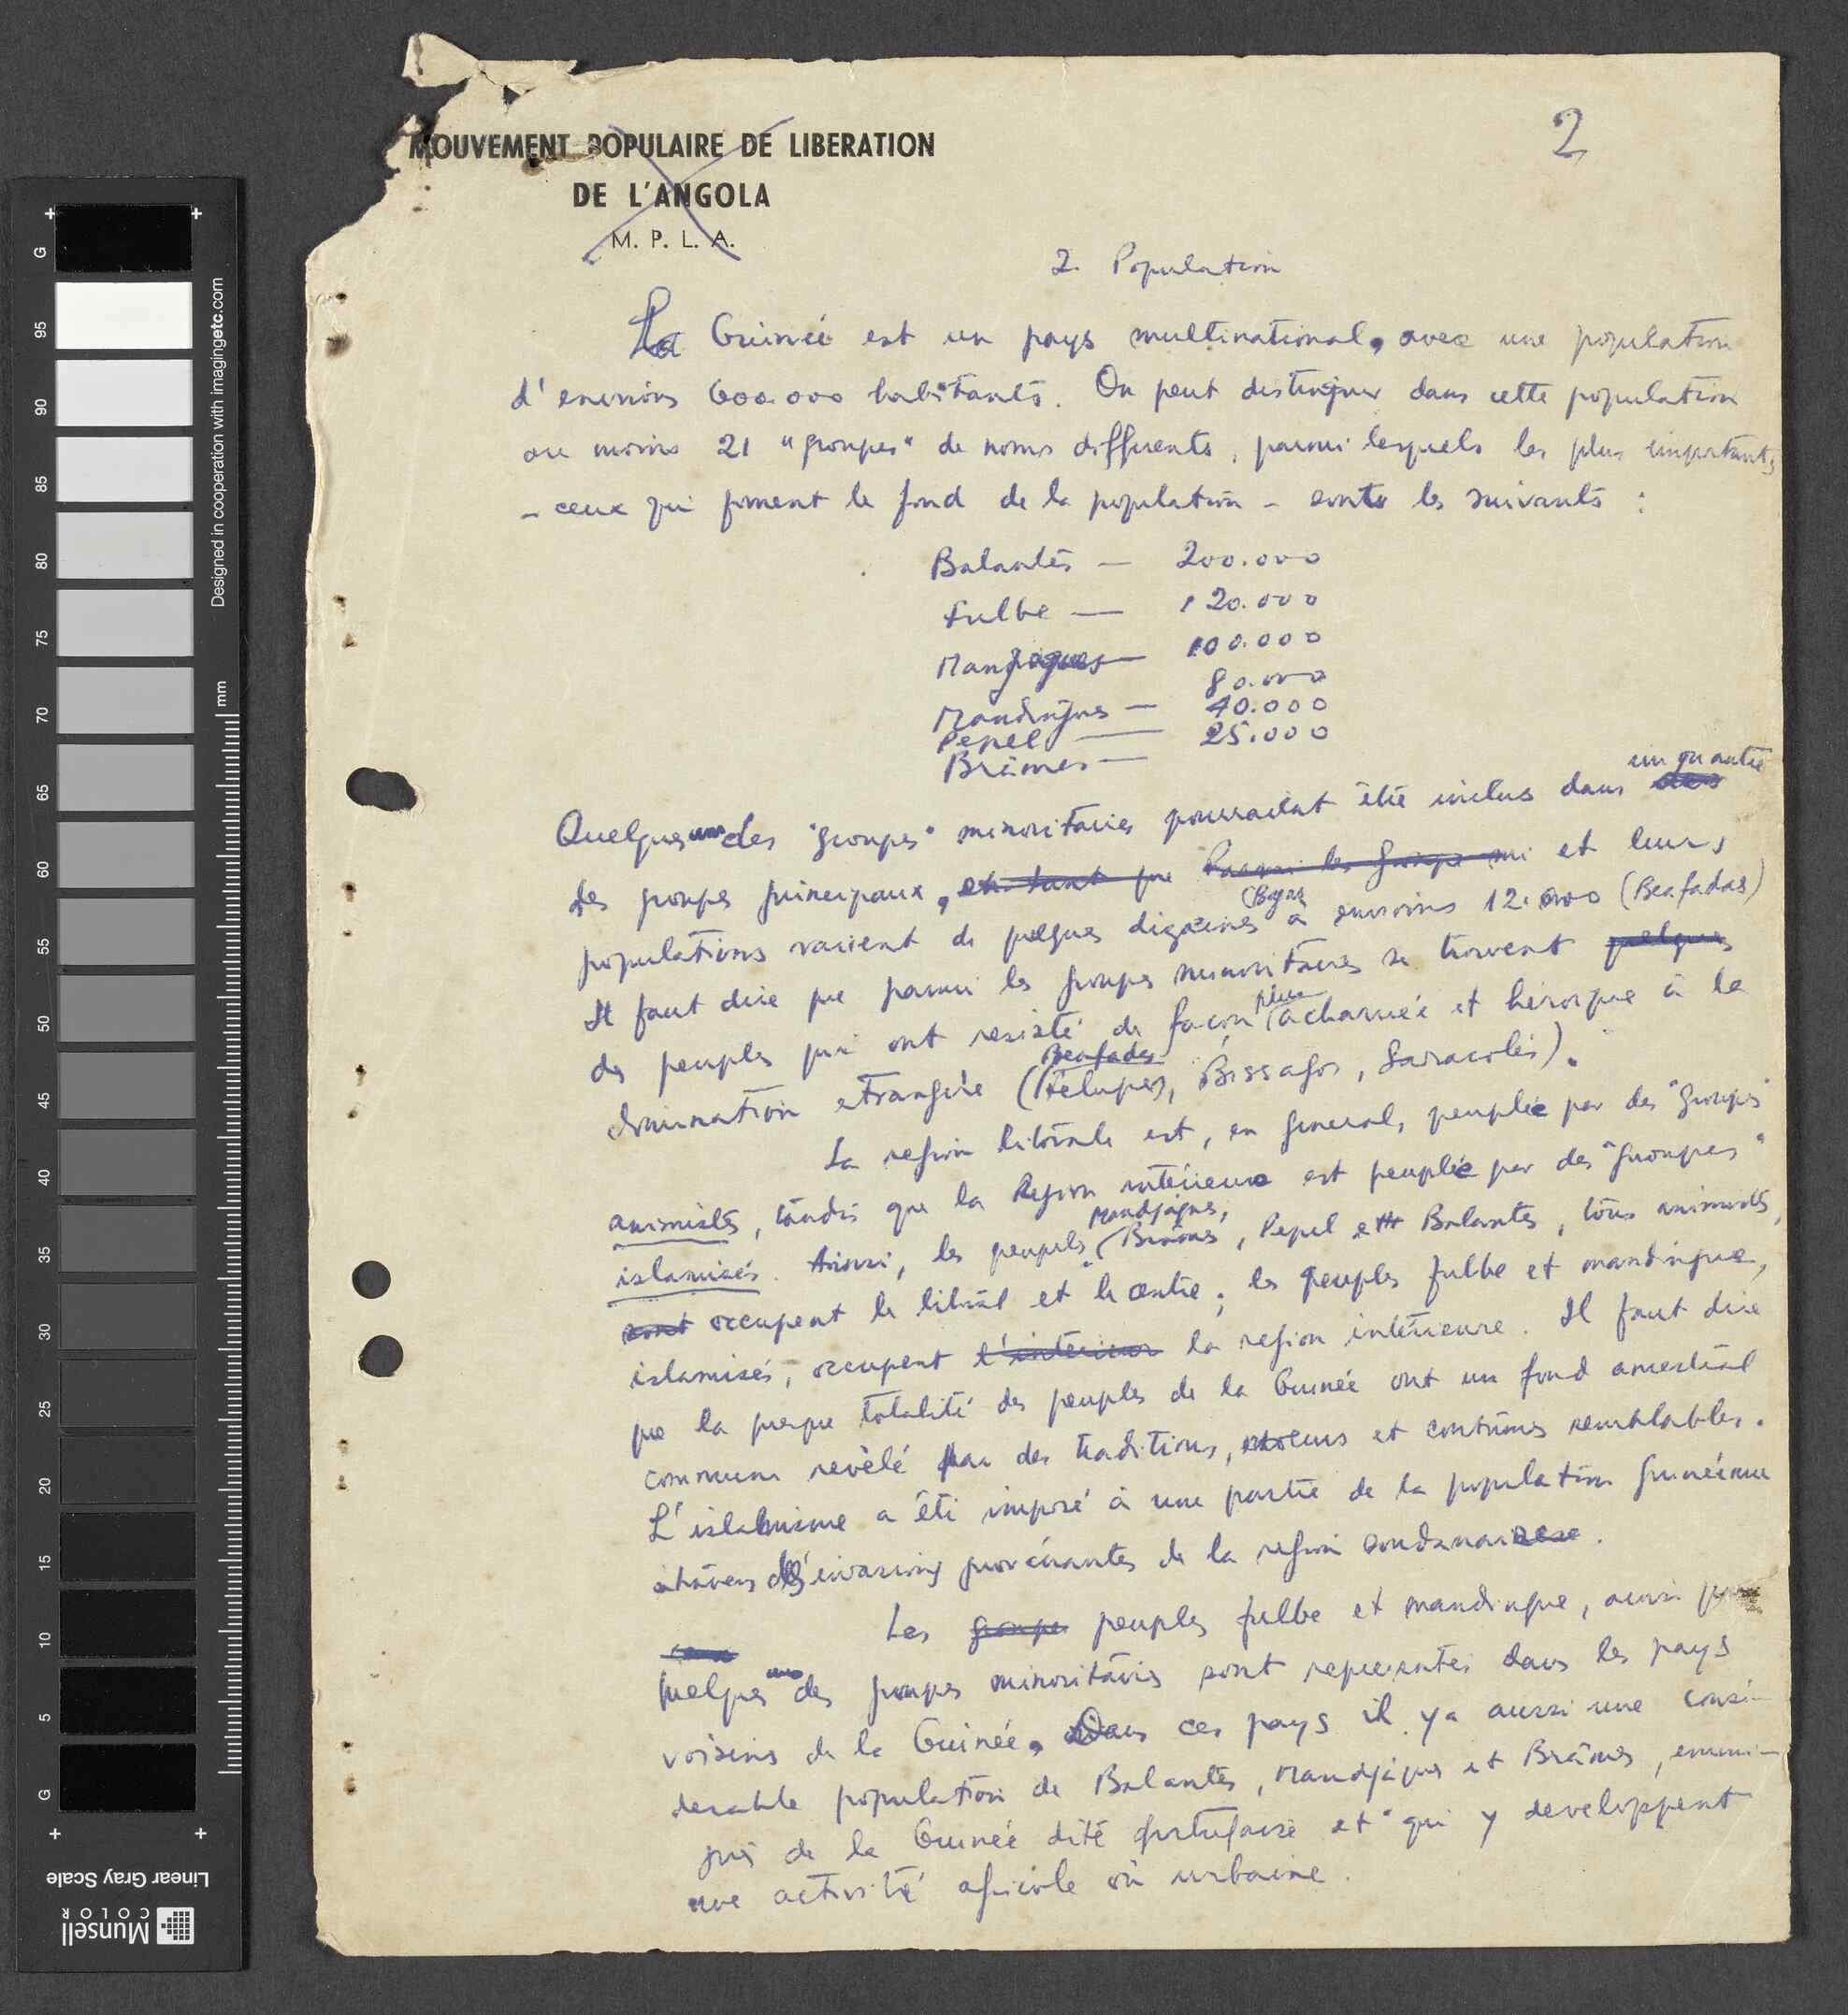 MOUVEMENT POPULAIRE DE LIBERATION
DE L'ANGOLA
M. P. L. A.
2
2. Population
La Guinée est un pays multinational, avec une population
d'environs 600.000 habitants. On peut distinguer dans cette population
au moins 21 "groupes" de noms differents, parmi lesquels les plus importants
- ceux qui forment le fond de la population - sont les suivants :
Balantes — 200.000
Fulbe — 120.000
Mandjaques — 100.000
Mandingues — 80.000
Pepel — 40.000
Brâmes — 25.000
Quelques uns des "groupes" minoritaires pourraient être inclus dans un ou autre
des groupes principaux, en tant que Parmi les groupes mi et leurs
populations varient de quelques dizaines à environs 12.000 (Beafadas)
Il faut dire que parmi les groupes minoritaires se trouvent quelques
des peuples qui ont resisté de façon plus acharnée et héroique à la
domination etrangère (Beafades Félupes), Bissagos, Saracolés).
La region litorale est, en general, peuplée par des "groupes"
animistes, tandis que la Region intérieure est peuplée par des "groupes"
islamisés. Ainsi, les peuples (Mandjaques, Brâmes, Pepel et Balantes, tous animistes,
sont occupent le litoral et le centre ; les peuples fulbe et mandingue,
islamisés, occupent l'intérieur la region intérieure. Il faut dire
que la presque totalité des peuples de la Guinée ont un fond ancestral
commun revèlé par des traditions, moeurs et coutûmes semblables.
L'islamisme a été imposé à une partie de la population guinéenne
à travers des invasions provénantes de la region soudanaise.
Les groupes peuples fulbe et mandingue, aussi que
quelques uns des groupes minoritaires sont representés dans les pays
voisins de la Guinée. Dans ces pays il y a aussi une consi-
derable population de Balantes, Mandjaques et Brâmes, emmi-
grés de la Guinée dite portugaise et qui y developpent
une activité agricole où urbaine.
Designed in cooperation with imagingetc.com
mm
G
95
90
85
80
75
70
65
60
55
50
45
40
35
30
25
20
15
10
5
G
Linear Gray Scale
Munsell
COLOR